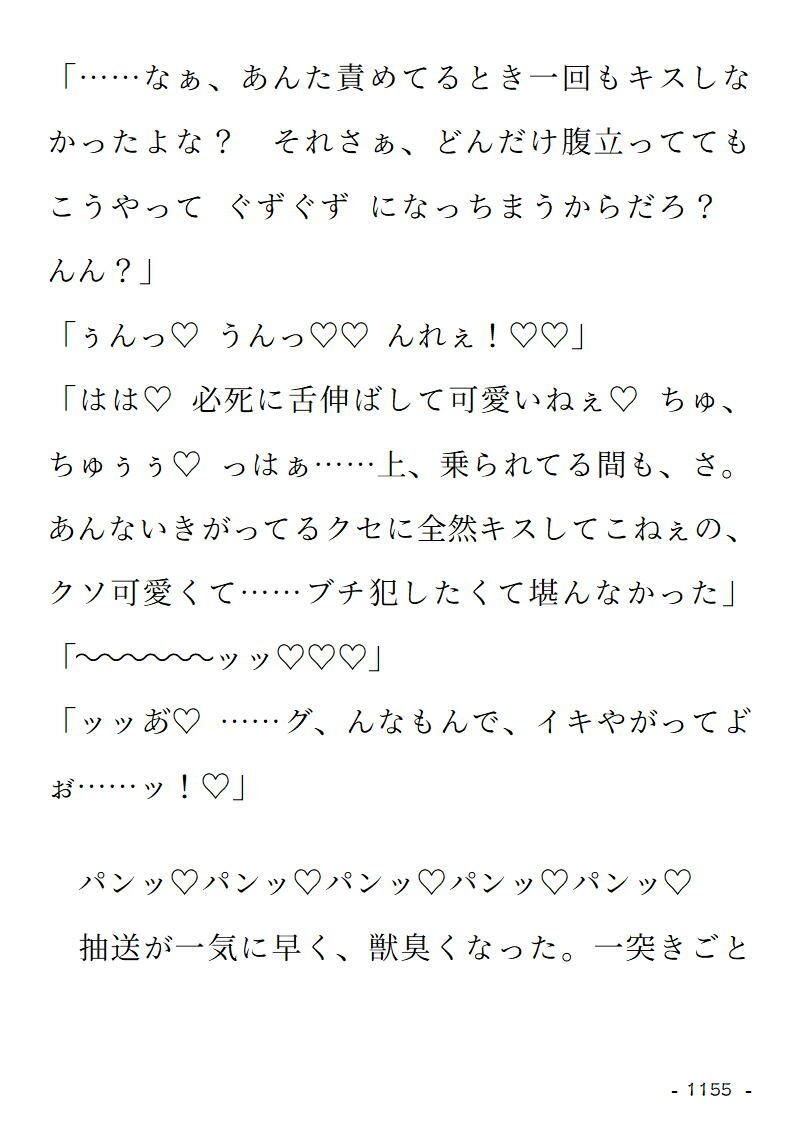 「……なぁ、あんた責めてるとき一回もキスしな
かったよな？　それさぁ、どんだけ腹立ってても
こうやって ぐずぐず になっちまうからだろ？
んん？」
「ぅんっ♡ うんっ♡♡ んれぇ！♡♡」
「はは♡ 必死に舌伸ばして可愛いねぇ♡ ちゅ、
ちゅぅぅ♡ っはぁ……上、乗られてる間も、さ。
あんないきがってるクセに全然キスしてこねぇの、
クソ可愛くて……ブチ犯したくて堪んなかった」
「〜〜〜〜〜〜ッッ♡♡♡」
「ッッあ゙♡ ……グ、んなもんで、イキやがってよ゙
ぉ゙……ッ！♡」
パンッ♡パンッ♡パンッ♡パンッ♡パンッ♡
抽送が一気に早く、獣臭くなった。一突きごと
- 1155 -